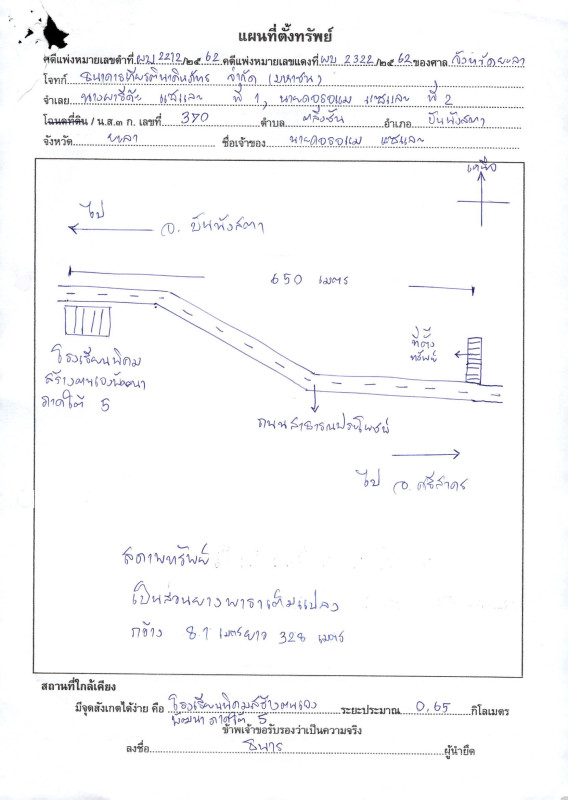 แผนที่ตั้งทรัพย์
คดีแพ่งหมายเลขดำที่ ผบ 2212/๒๕ 62 คดีแพ่งหมายเลขแดงที่ ผบ 2322/๒๕ 62 ของศาล จังหวัดยะลา
โจทก์ ธนาคารเกียรตินาคินภัทร จำกัด (มหาชน)
จำเลย ที่ 1, ที่ 2
โฉนดที่ดิน / น.ส.๓ ก. เลขที่ 370 ตำบล ตลิ่งชัน อำเภอ บันนังสตา
จังหวัด ยะลา ชื่อเจ้าของ
เหนือ
ไป
อ. บันนังสตา
650 เมตร
ที่ตั้ง
ทรัพย์
โรงเรียนนิคม
สร้างตนเองพัฒนา
ภาคใต้ 5
ถนนสาธารณประโยชน์
ไป อ. ศรีสาคร
สภาพทรัพย์
เป็นสวนยางพาราเต็มแปลง
กว้าง 8.1 เมตร ยาว 328 เมตร
สถานที่ใกล้เคียง
มีจุดสังเกตได้ง่าย คือ โรงเรียนนิคมสร้างตนเอง
พัฒนา ภาคใต้ 5 ระยะประมาณ 0.65 กิโลเมตร
ข้าพเจ้าขอรับรองว่าเป็นความจริง
ลงชื่อ ผู้นำยึด